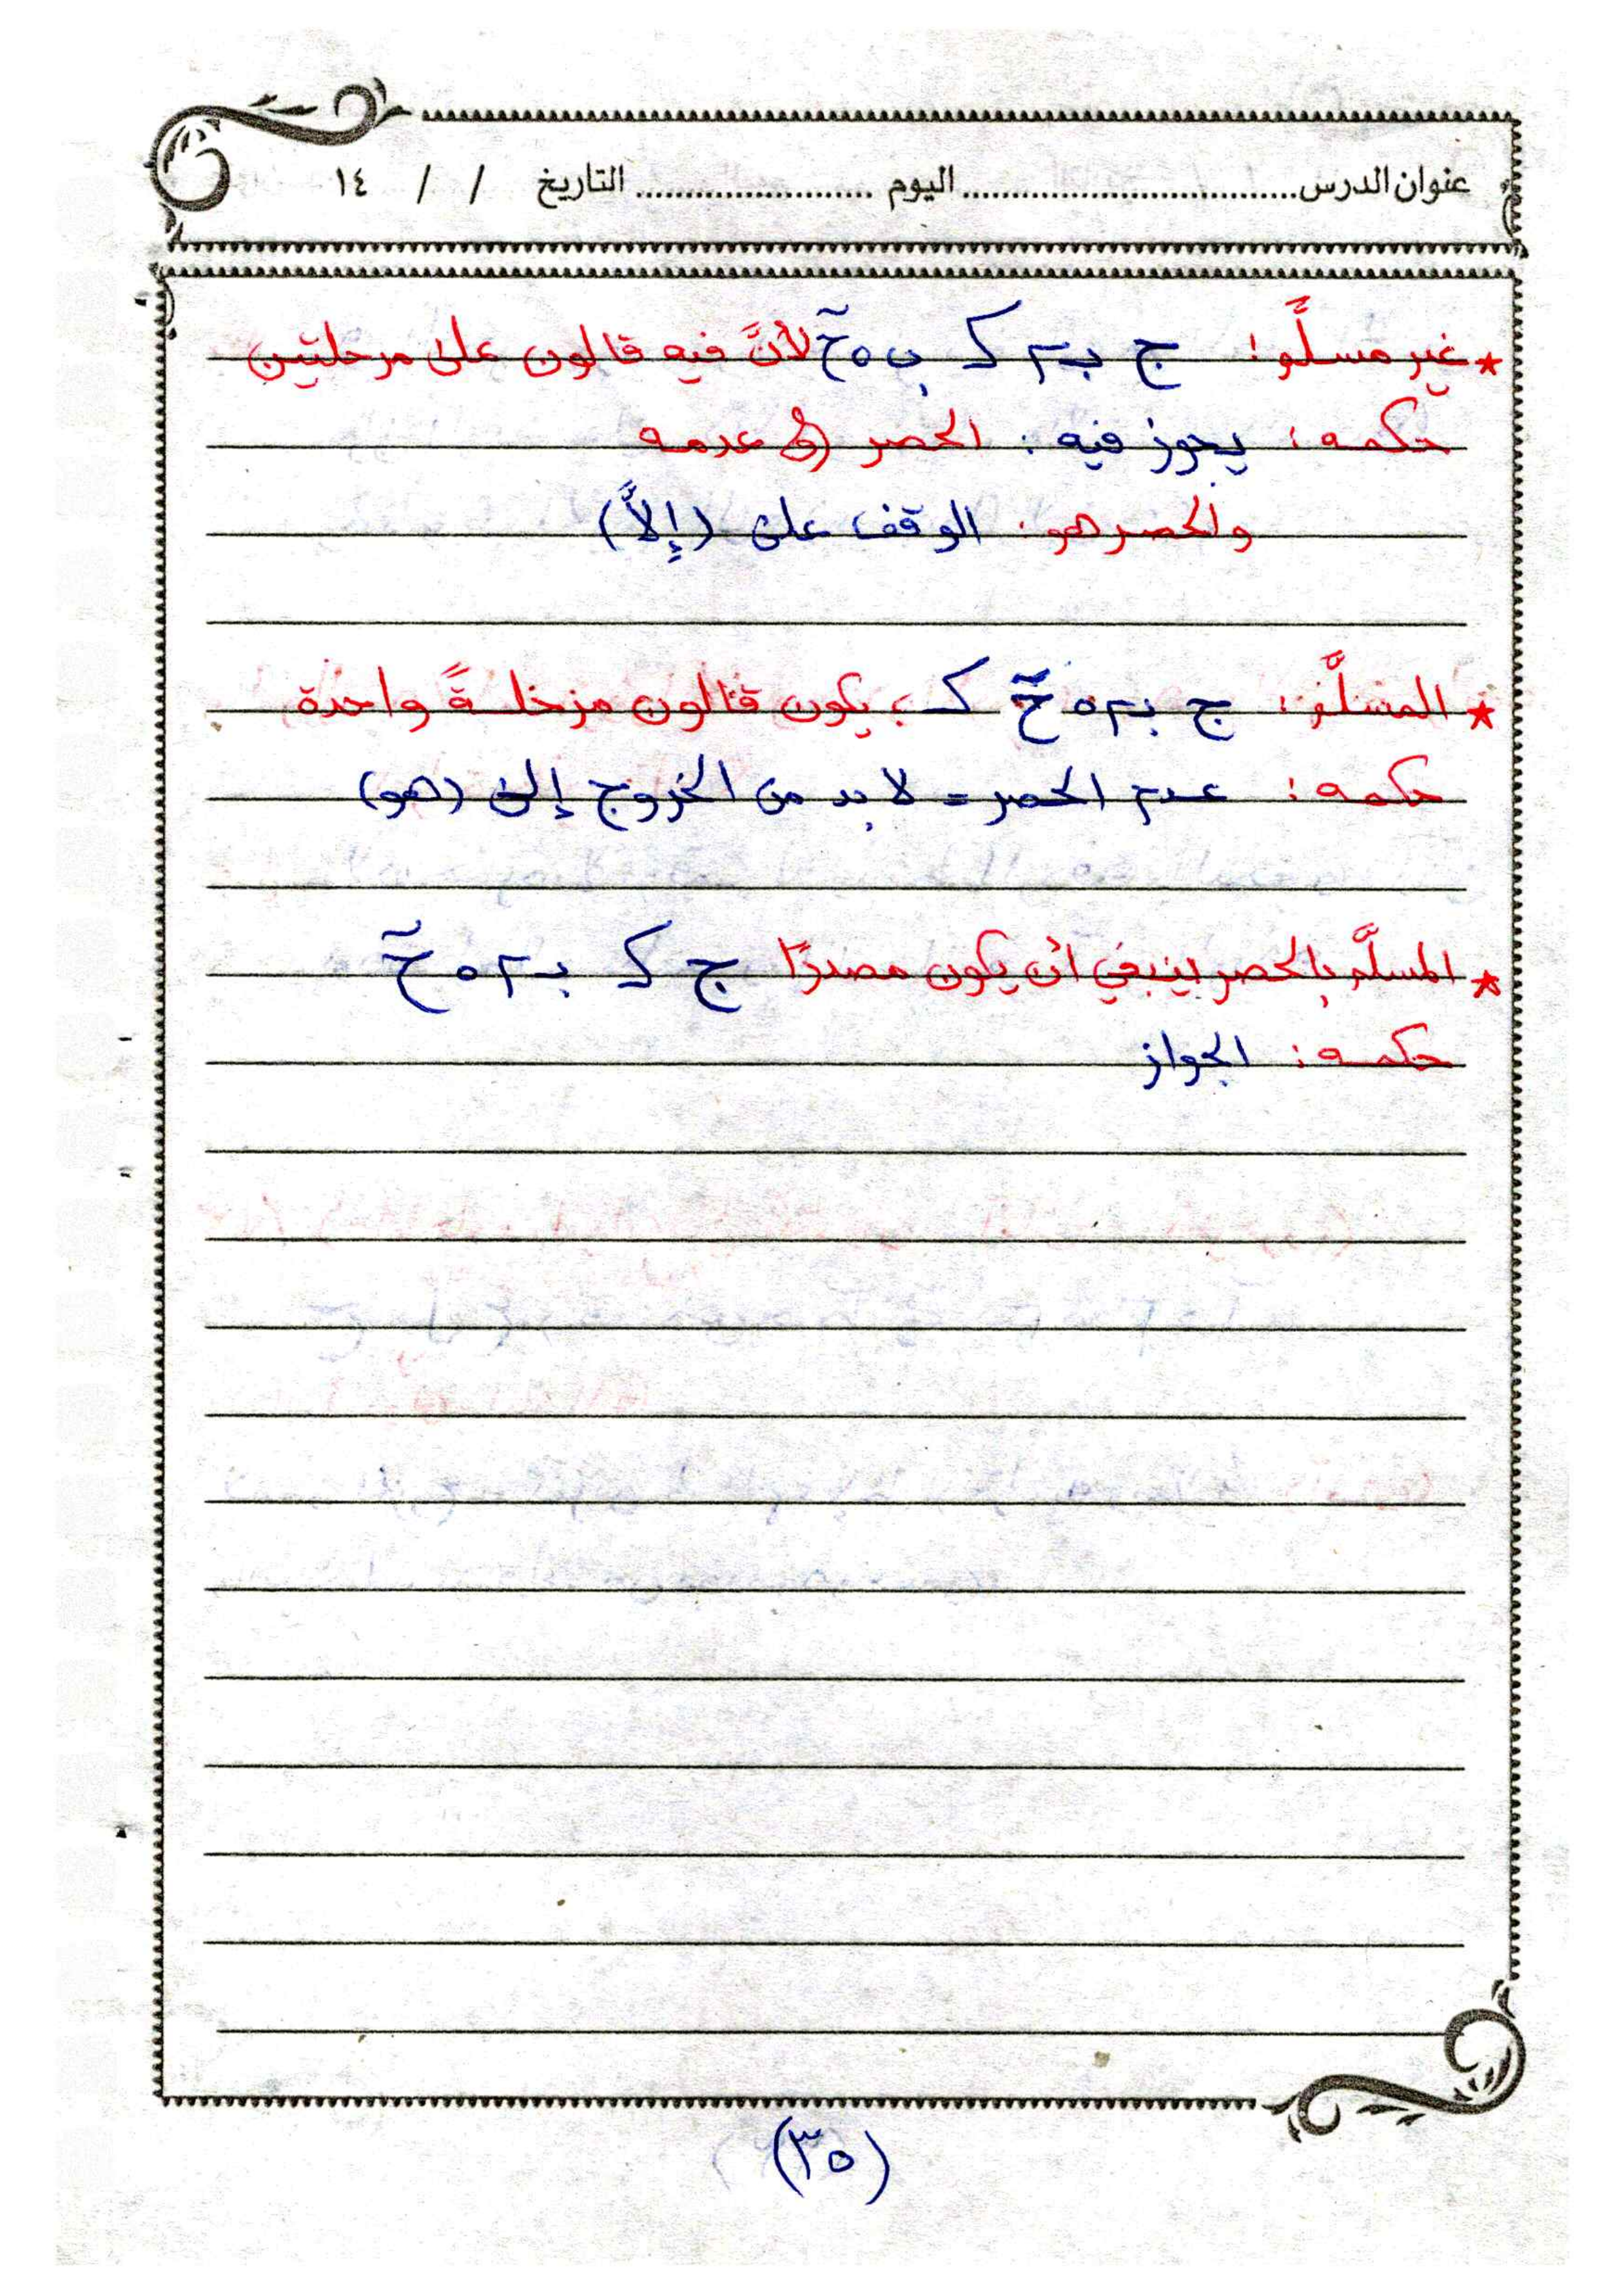 عنوان الدرس................................ اليوم ........................ التاريخ / / ١٤
* غير مسلَّم: ج بـ م ک ب ٥ خ~ لأنَّ فيه قالون على مرحلتين
حكمه: يجوز فيه: الحصر عدمه
والحصر هو: الوقف على (إلاَّ)
* المسلَّم: ج بـ م ٥ خ~ ک، يكون قالون مرحلةً واحدة
حكمه: عدم الحصر = لا بد من الخروج إلى (هو)
* المسلَّم بالحصر ينبغي أن يكون مصدرًا ج ک بـ م ٥ خ~
حكمه: الجواز
(٣٥)